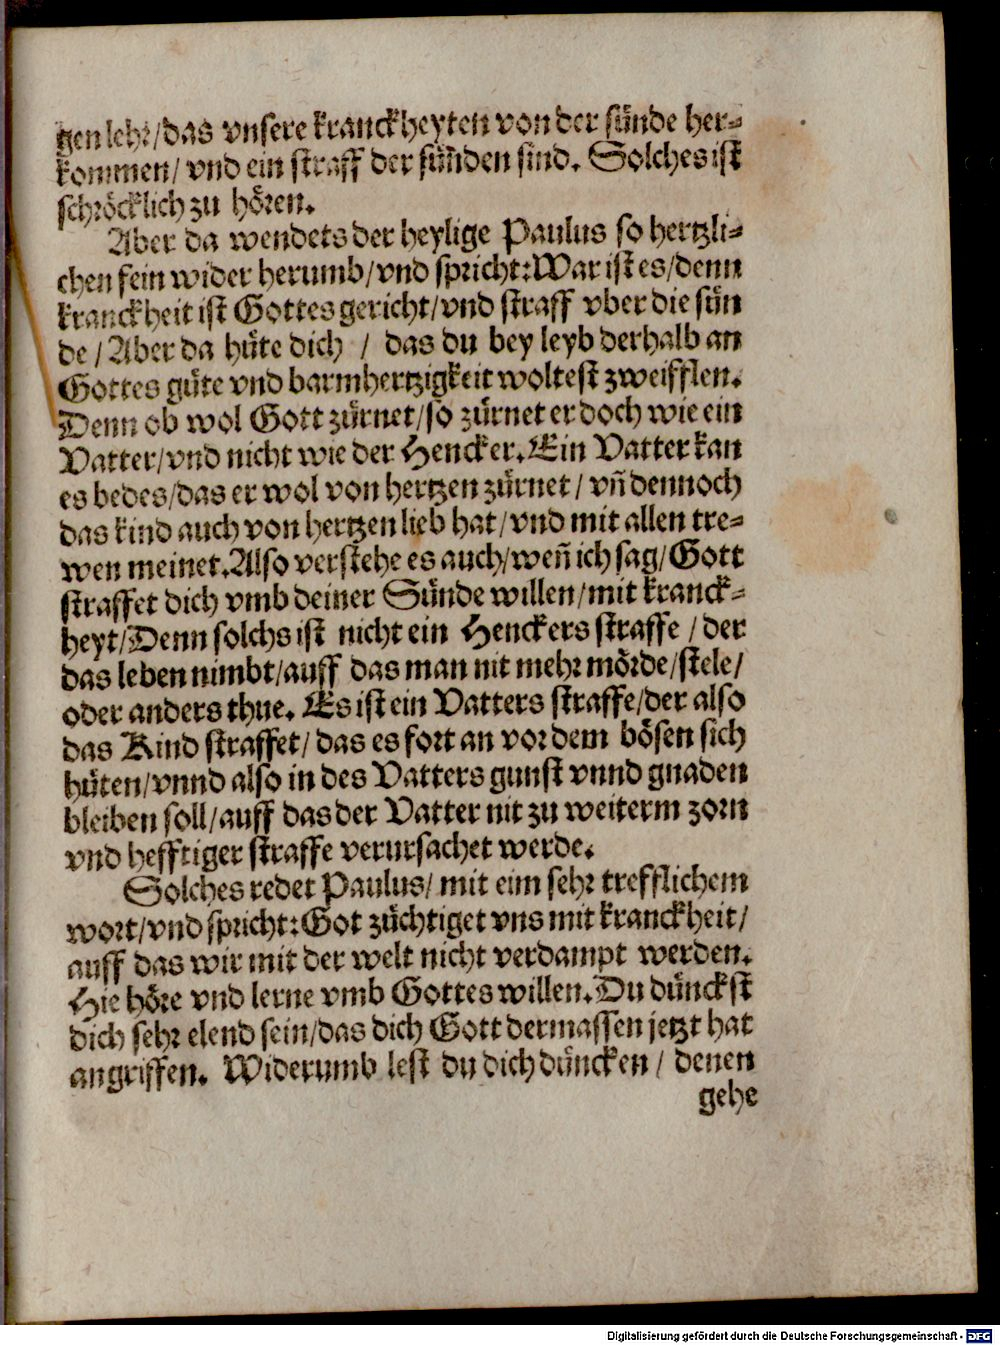 gen lehr/das vnsere kranckheyten von der sünde her-
kommen/ vnd ein straff der sün̄den sind. Solches ist
schröcklich zu hören.
Aber da wendets der heylige Paulus so hertzli-
chen fein wider herumb/vnd spricht:War ist es/denn
kranckheit ist Gottes gericht/vnd straff vber die sün
de/Aber da hüte dich / das du bey leyb derhalb an
Gottes güte vnd barmhertzigkeit woltest zweifflen.
Denn ob wol Gott zürnet/so zürnet er doch wie ein
Vatter/vnd nicht wie der Hencker.Ein Vatter kan
es bedes/das er wol von hertzen zürnet/ vn̄ dennoch
das kind auch von hertzen lieb hat/vnd mit allen tre-
wen meinet.Also verstehe es auch/wen̄ ich sag/Gott
straffet dich vmb deiner Sünde willen/mit kranck-
heyt/Denn solchs ist nicht ein Henckers straffe/der
das leben nimbt/auff das man nit mehr mörde/stele/
oder anders thue. Es ist ein Vatters straffe/der also
das Kind straffet/das es fort an vor dem bösen sich
hüten/vnnd also in des Vatters gunst vnnd gnaden
bleiben soll/auff das der Vatter nit zu weiterm zorn
vnd hefftiger straffe verursachet werde.
Solches redet Paulus/mit eim sehr trefflichem
wort/vnd spricht:Got züchtiget vns mit kranckheit/
auff das wir mit der welt nicht verdampt werden.
Hie höre vnd lerne vmb Gottes willen.Du dünckst
dich sehr elend sein/das dich Gott dermassen jetzt hat
angriffen. Widerumb lest du dich düncken/ denen
gehe
Digitalisierung gefördert durch die Deutsche Forschungsgemeinschaft - DFG